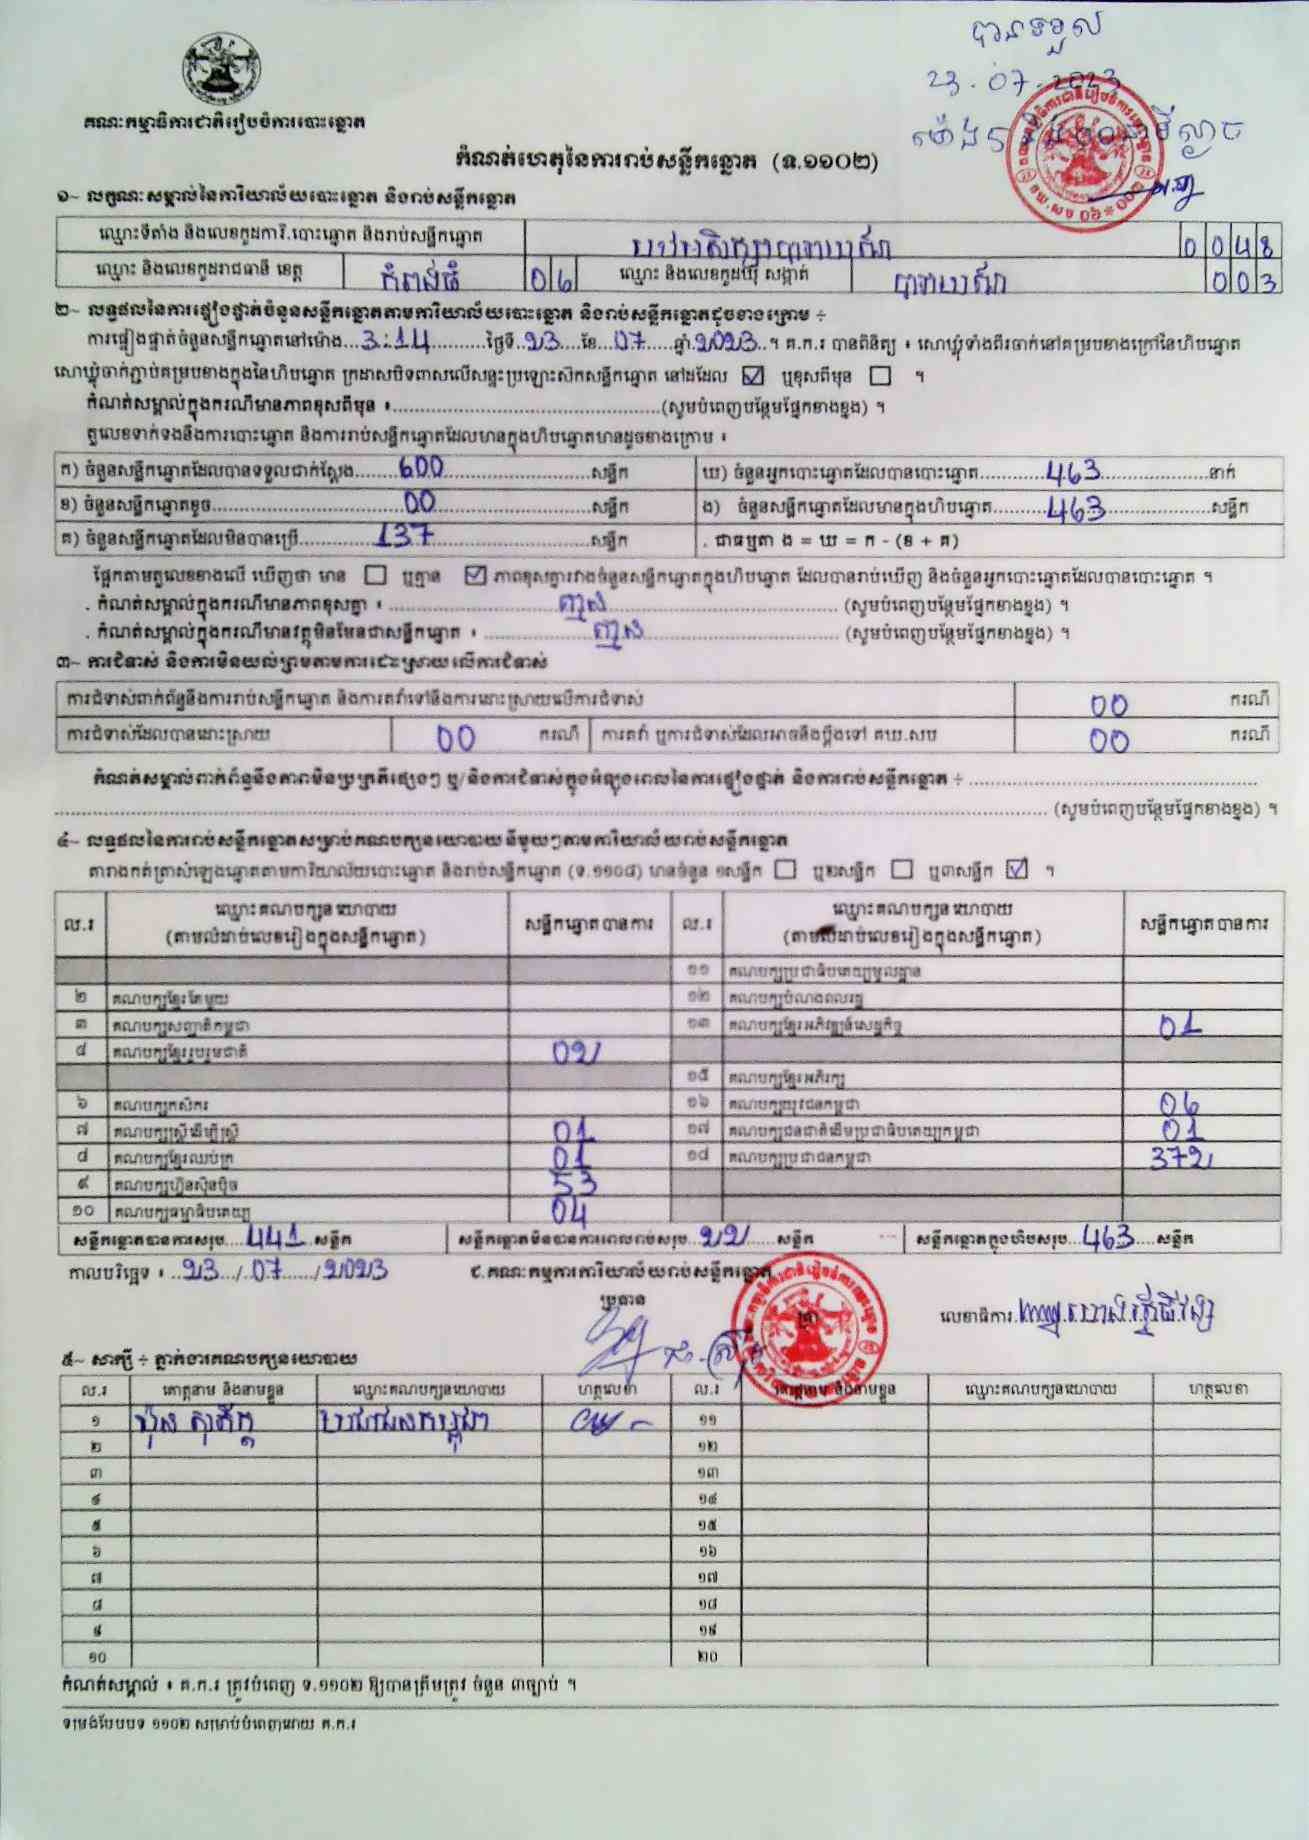 បានទទួល
23.07.2023
គណៈកម្មាធិការជាតិរៀបចំការបោះឆ្នោត
កំណត់ហេតុនៃការរាប់សន្លឹកឆ្នោត (ទ.១១០២)
១~ លក្ខណៈសម្គាល់នៃការិយាល័យបោះឆ្នោត និងរាប់សន្លឹកឆ្នោត
ឈ្មោះទីតាំង និងលេខកូដការិ.បោះឆ្នោត និងរាប់សន្លឹកឆ្នោត 0 0 4 8
ឈ្មោះ និងលេខកូដរាជធានី ខេត្ត កំពង់ធំ 0 6 ឈ្មោះ និងលេខកូដឃុំ សង្កាត់ 0 0 3
២~ លទ្ធផលនៃការផ្ទៀងផ្ទាត់ចំនួនសន្លឹកឆ្នោតតាមការិយាល័យបោះឆ្នោត និងរាប់សន្លឹកឆ្នោតដូចខាងក្រោម ÷
ការផ្ទៀងផ្ទាត់ចំនួនសន្លឹកឆ្នោតនៅម៉ោង...3:14...ថ្ងៃទី..23...ខែ...07...ឆ្នាំ.2023..។ គ.ក.រ បានពិនិត្យ ៖ សោឃ្លុំទាំងពីរចាក់នៅគម្របខាងក្រៅនៃហិបឆ្នោត
សោឃ្លុំចាក់ភ្ជាប់គម្របខាងក្នុងនៃហិបឆ្នោត ក្រដាសបិទពាសលើសន្ទះប្រឡោះសឹកសន្លឹកឆ្នោត នៅដដែល ☑ ឬខុសពីមុន ☐ ។
កំណត់សម្គាល់ក្នុងករណីមានភាពខុសពីមុន ៖......(សូមបំពេញបន្ថែមផ្នែកខាងខ្នង) ។
តួលេខទាក់ទងនឹងការបោះឆ្នោត និងការរាប់សន្លឹកឆ្នោតដែលមានក្នុងហិបឆ្នោតមានដូចខាងក្រោម ៖
ក) ចំនួនសន្លឹកឆ្នោតដែលបានទទួលជាក់ស្តែង......600......សន្លឹក ឃ) ចំនួនអ្នកបោះឆ្នោតដែលបានបោះឆ្នោត......463......នាក់
ខ) ចំនួនសន្លឹកឆ្នោតខូច......00......សន្លឹក ង) ចំនួនសន្លឹកឆ្នោតដែលមានក្នុងហិបឆ្នោត......463......សន្លឹក
គ) ចំនួនសន្លឹកឆ្នោតដែលមិនបានប្រើ......137......សន្លឹក . ជាធម្មតា ង = ឃ = ក - (ខ + គ)
ផ្អែកតាមតួលេខខាងលើ ឃើញថា មាន ☐ ឬគ្មាន ☑ ភាពខុសគ្នារវាងចំនួនសន្លឹកឆ្នោតក្នុងហិបឆ្នោត ដែលបានរាប់ឃើញ និងចំនួនអ្នកបោះឆ្នោតដែលបានបោះឆ្នោត ។
. កំណត់សម្គាល់ក្នុងករណីមានភាពខុសគ្នា ៖ ...... (សូមបំពេញបន្ថែមផ្នែកខាងខ្នង) ។
. កំណត់សម្គាល់ក្នុងករណីមានវត្ថុមិនមែនជាសន្លឹកឆ្នោត ៖ ...... (សូមបំពេញបន្ថែមផ្នែកខាងខ្នង) ។
៣~ ការជំទាស់ និងការមិនយល់ព្រមតាមការដោះស្រាយ លើការជំទាស់
ការជំទាស់ពាក់ព័ន្ធនឹងការរាប់សន្លឹកឆ្នោត និងការតវ៉ាទៅនឹងការដោះស្រាយលើការជំទាស់ 00 ករណី
ការជំទាស់ដែលបានដោះស្រាយ 00 ករណី ការតវ៉ា ឬការជំទាស់ដែលអាចនឹងប្តឹងទៅ គឃ.សប 00 ករណី
កំណត់សម្គាល់ពាក់ព័ន្ធនឹងភាពមិនប្រក្រតីផ្សេងៗ ឬ/និងការជំទាស់ក្នុងអំឡុងពេលនៃការផ្ទៀងផ្ទាត់ និងការរាប់សន្លឹកឆ្នោត ÷ ......
...... (សូមបំពេញបន្ថែមផ្នែកខាងខ្នង) ។
៤~ លទ្ធផលនៃការរាប់សន្លឹកឆ្នោតសម្រាប់គណបក្សនយោបាយនីមួយៗតាមការិយាល័យរាប់សន្លឹកឆ្នោត
តារាងកត់ត្រាសំឡេងឆ្នោតតាមការិយាល័យបោះឆ្នោត និងរាប់សន្លឹកឆ្នោត (ទ.១១០៨) មានចំនួន ១សន្លឹក ☐ ឬ២សន្លឹក ☐ ឬ៣សន្លឹក ☑ ។
ល.រ ឈ្មោះគណបក្សនយោបាយ (តាមលំដាប់លេខរៀងក្នុងសន្លឹកឆ្នោត) សន្លឹកឆ្នោតបានការ ល.រ ឈ្មោះគណបក្សនយោបាយ (តាមលំដាប់លេខរៀងក្នុងសន្លឹកឆ្នោត) សន្លឹកឆ្នោតបានការ
១១ គណបក្សប្រជាធិបតេយ្យមូលដ្ឋាន
២ គណបក្សខ្មែរតែមួយ ១២ គណបក្សបំណងពលរដ្ឋ
៣ គណបក្សសញ្ជាតិកម្ពុជា ១៣ គណបក្សខ្មែរអភិវឌ្ឍន៍សេដ្ឋកិច្ច 01
៤ គណបក្សខ្មែររួបរួមជាតិ 02
១៥ គណបក្សខ្មែរអភិរក្ស
៦ គណបក្សកសិករ ១៦ គណបក្សយុវជនកម្ពុជា 06
៧ គណបក្សស្ត្រីដើម្បីស្ត្រី 01 ១៧ គណបក្សជនជាតិដើមប្រជាធិបតេយ្យកម្ពុជា 01
៨ គណបក្សខ្មែរឈប់ក្រ 01 ១៨ គណបក្សប្រជាជនកម្ពុជា 372
៩ គណបក្សហ្វ៊ុនស៊ិនប៉ិច 53
១០ គណបក្សធម្មាធិបតេយ្យ 04
សន្លឹកឆ្នោតបានការសរុប...441...សន្លឹក សន្លឹកឆ្នោតមិនបានការពេលរាប់សរុប..22...សន្លឹក សន្លឹកឆ្នោតក្នុងហិបសរុប..463...សន្លឹក
កាលបរិច្ឆេទ ៖ ..23../.07.../2023 ជ.គណៈកម្មការការិយាល័យរាប់សន្លឹកឆ្នោត
ប្រធាន
លេខាធិការ.
៥~ សាក្សី ÷ ភ្នាក់ងារគណបក្សនយោបាយ
ល.រ គោត្តនាម និងនាមខ្លួន ឈ្មោះគណបក្សនយោបាយ ហត្ថលេខា ល.រ គោត្តនាម និងនាមខ្លួន ឈ្មោះគណបក្សនយោបាយ ហត្ថលេខា
១ ប្រជាជនកម្ពុជា ១១
២ ១២
៣ ១៣
៤ ១៤
៥ ១៥
៦ ១៦
៧ ១៧
៨ ១៨
៩ ១៩
១០ ២០
កំណត់សម្គាល់ ៖ គ.ក.រ ត្រូវបំពេញ ទ.១១០២ ឱ្យបានត្រឹមត្រូវ ចំនួន ៣ច្បាប់ ។
ទម្រង់បែបបទ ១១០២ សម្រាប់បំពេញដោយ គ.ក.រ